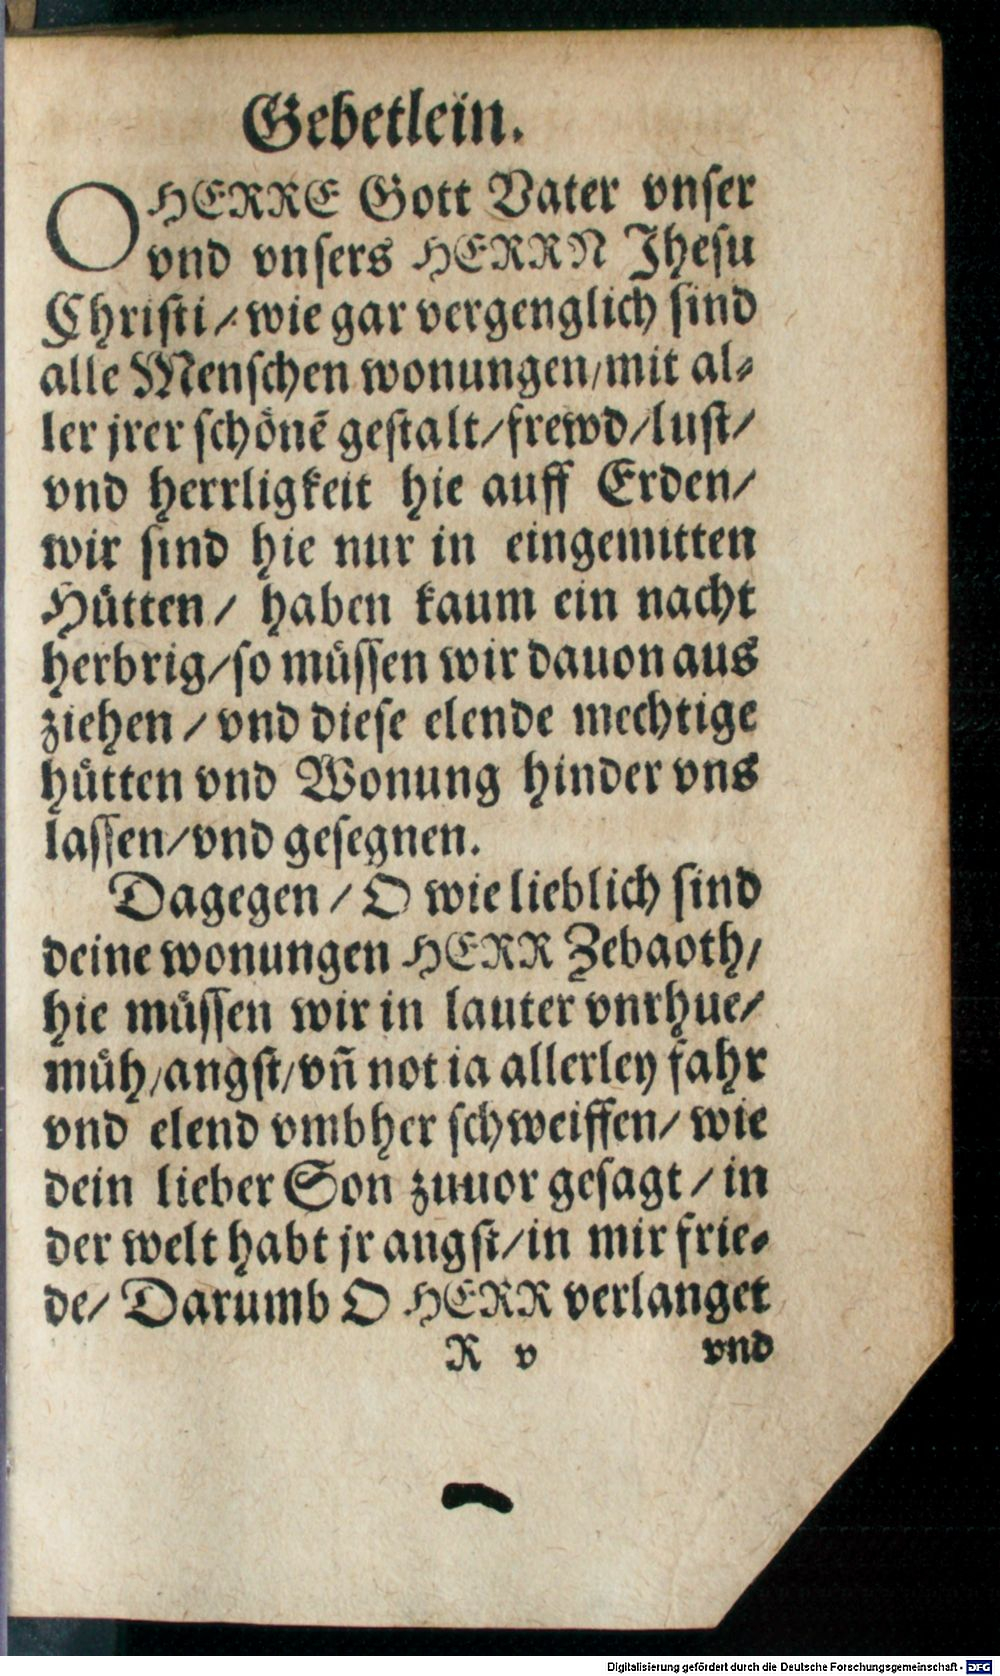 Gebetlein.
O HERRE Gott Vater vnser
vnd vnsers HERRN Jhesu
Christi / wie gar vergenglich sind
alle Menschen wonungen / mit al-
ler jrer schönē gestalt / frewd / lust /
vnd herrligkeit hie auff Erden /
wir sind hie nur in eingemitten
Hütten / haben kaum ein nacht
herbrig / so müssen wir dauon aus
ziehen / vnd diese elende mechtige
hütten vnd Wonung hinder vns
lassen / vnd gesegnen.
Dagegen / O wie lieblich sind
deine wonungen HERR Zebaoth /
hie müssen wir in lauter vnrhue /
müh / angst / vn̄ not ia allerley fahr
vnd elend vmbher schweiffen / wie
dein lieber Son zuuor gesagt / in
der welt habt jr angst / in mir frie-
de / Darumb O HERR verlanget
R v vnd
Digitalisierung gefördert durch die Deutsche Forschungsgemeinschaft - DFG